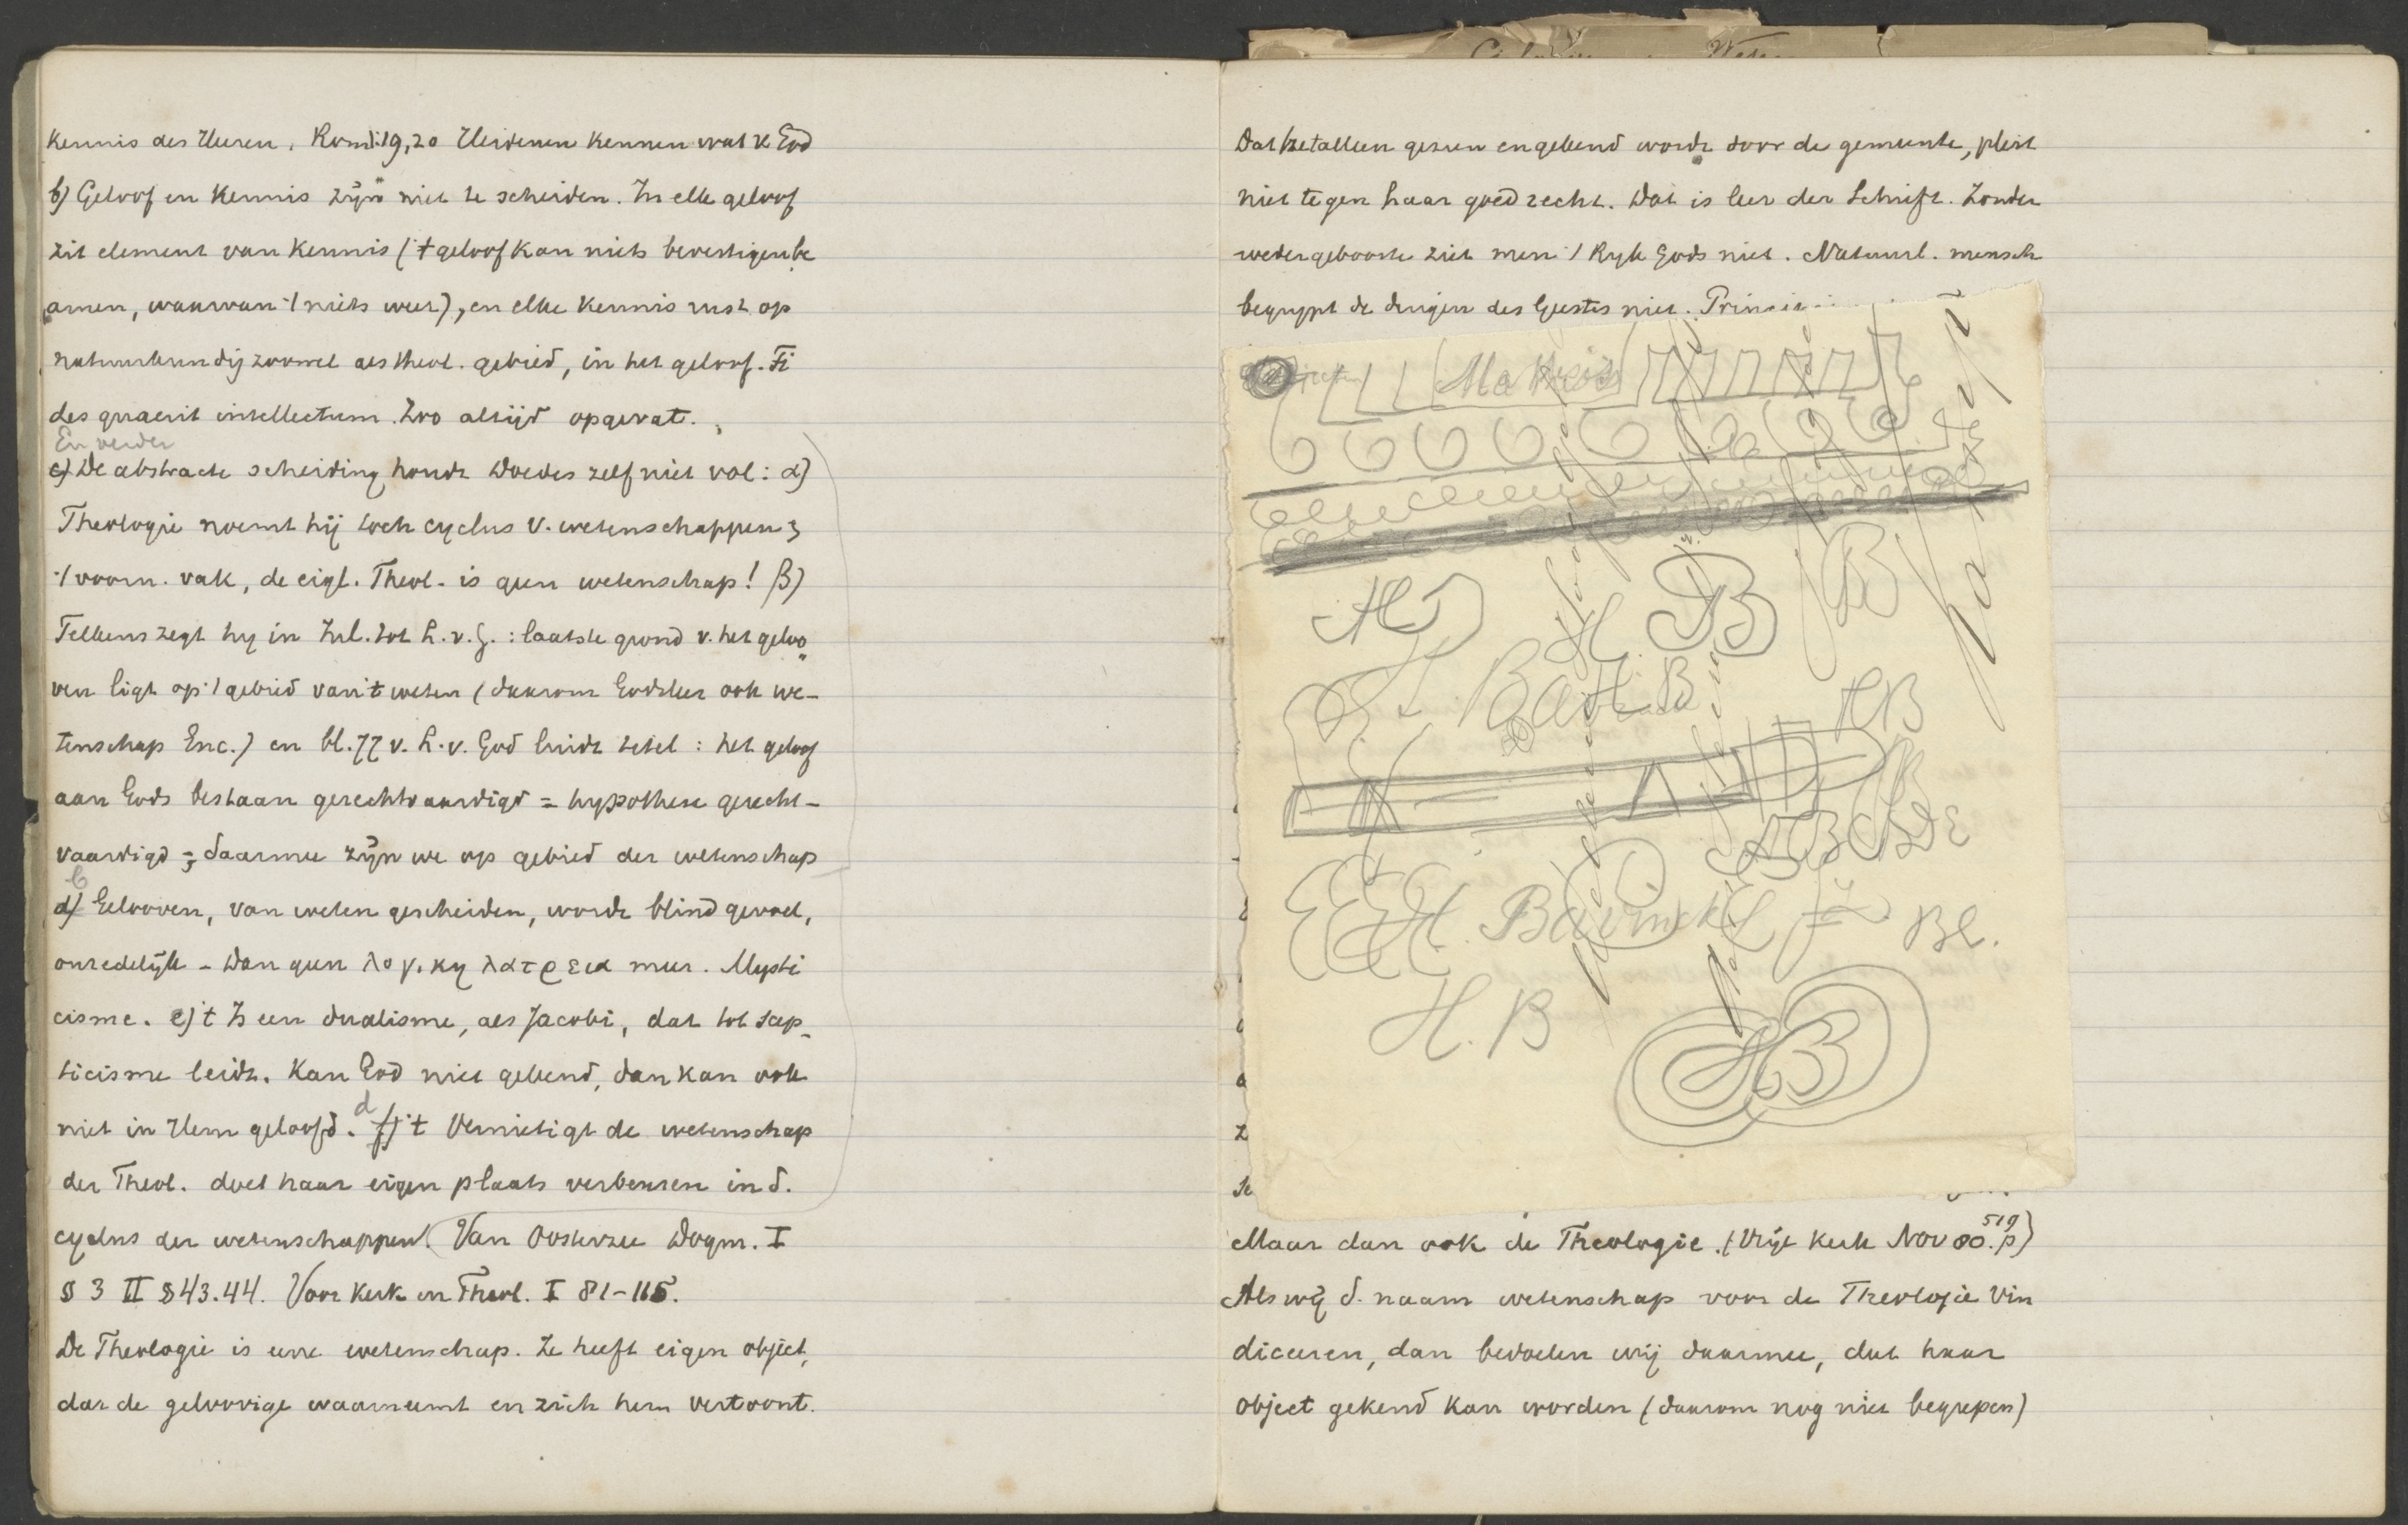 Kennis des Heeren. Rom 1:19,20 Heidenen kennen wat v God
b) Geloof en Kennis zijn niet te scheiden. In elk geloof
zit element van Kennis ('t geloof kan niets bevestigen be
amen, waarvan 't niets weet), en elke Kennis rust op
natuurkundig zoowel als theol. gebied, in het geloof. Fi
des quaerit intellectum. Zoo altijd opgevat.
En verder
c) De abstracte scheiding houdt Doedes zelf niet vol: α)
Theologie noemt hij toch cyclus v. wetenschappen &
't voorn. vak, de eigl. Theol. is geen wetenschap! β)
Telkens zegt hy in Inl. tot L.v.G.: laatste grond v. het geloo
ven ligt op 't gebied van 't weten (daarom Godsleer ook we-
tenschap Enc.) en bl. 77 v. L.v. God luidt titel: het geloof
aan Gods bestaan gerechtvaardigd = hypothese gerecht-
vaardigd = daarmee zijn we op gebied der wetenschap
c
d) Gelooven, van weten gescheiden, wordt blind gevoel,
onredelijk - Dan geen λογικη λατρεια meer. Mysti
cisme. e) 't Is een dualisme, als Jacobi, dat tot scep-
ticisme leidt. Kan God niet gekend, dan kan ook
niet in Hem geloofd. d f) 't Vernietigt de wetenschap
der Theol. doet haar eigen plaats verbeuren in d.
cyclus der wetenschappen. (Van Oosterzee Dogm. I
§ 3 II § 43.44. Voor Kerk en Theol. I 81-115.
De Theologie is eene wetenschap. Ze heeft eigen object,
dat de geloovige waarneemt en zich hem vertoont.
Dat het alleen gezien en gekend wordt door de gemeente, pleit
niet tegen haar goed recht. Dat is leer der Schrift. Zonder
wedergeboorte ziet men 't Ryk Gods niet. Natuurl. mensch
begrypt de dingen des Geestes niet.
H B
B
H. B
H.B
HB
ABCDE
H. Bavinck
Bl.
H. B
HB
Maar dan ook de Theologie. (Vrije Kerk Nov 80. p 519)
Als wij d. naam wetenschap voor de Theologie vin
diceeren, dan bedoelen wij daarmee, dat haar
object gekend kan worden (daarom nog niet begrepen)